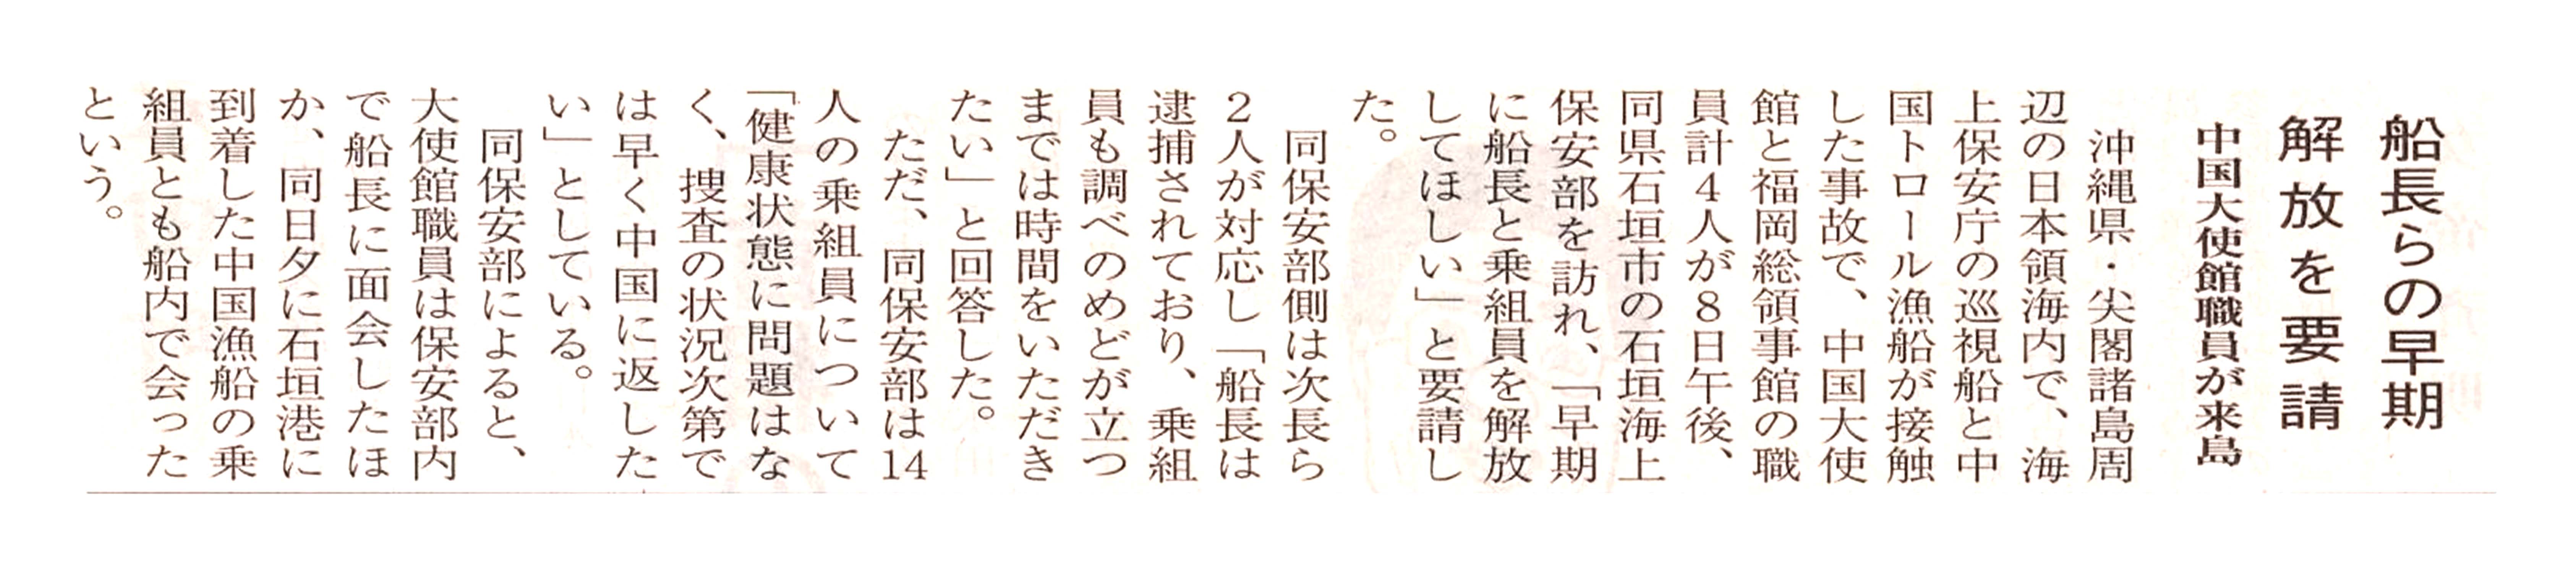 船長らの早期
解放を要請
中国大使館職員が来島
沖縄県・尖閣諸島周
辺の日本領海内で、海
上保安庁の巡視船と中
国トロール漁船が接触
した事故で、中国大使
館と福岡総領事館の職
員計4人が8日午後、
同県石垣市の石垣海上
保安部を訪れ、「早期
に船長と乗組員を解放
してほしい」と要請し
た。
同保安部側は次長ら
2人が対応し「船長は
逮捕されており、乗組
員も調べのめどが立つ
までは時間をいただき
たい」と回答した。
ただ、同保安部は14
人の乗組員について
「健康状態に問題はな
く、捜査の状況次第で
は早く中国に返した
い」としている。
同保安部によると、
大使館職員は保安部内
で船長に面会したほ
か、同日夕に石垣港に
到着した中国漁船の乗
組員とも船内で会った
という。